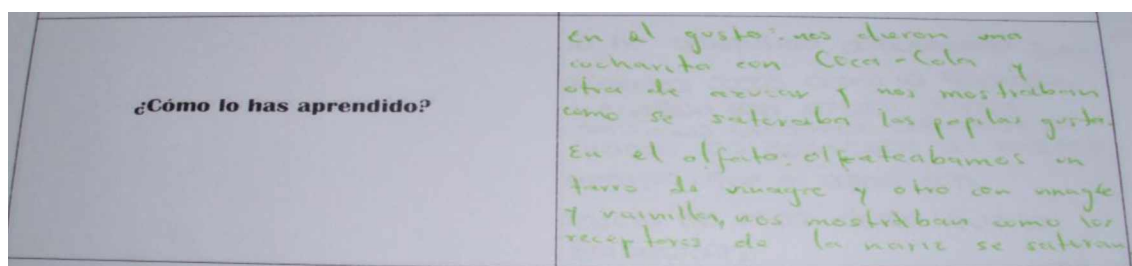 ¿Cómo lo has aprendido?
en el gusto: nos dieron una
cucharita con Coca-Cola y
otra de azucar y nos mostraban
como se saturaba las papilas gusta.
En el olfato: olfateabamos un
tarro de vinagre y otro con vinagre
y vainilla, nos mostraban como los
receptores de la nariz se saturan